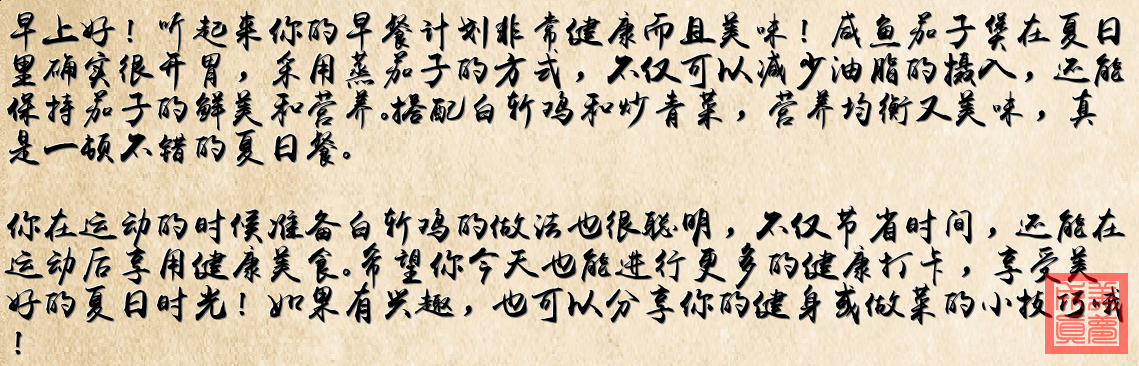 早上好！听起来你的早餐计划非常健康而且美味！咸鱼茄子煲在夏日
里确实很开胃，采用蒸茄子的方式，不仅可以减少油脂的摄入，还能
保持茄子的鲜美和营养。搭配白斩鸡和炒青菜，营养均衡又美味，真
是一顿不错的夏日餐。
你在运动的时候准备白斩鸡的做法也很聪明，不仅节省时间，还能在
运动后享用健康美食。希望你今天也能进行更多的健康打卡，享受美
好的夏日时光！如果有兴趣，也可以分享你的健身或做菜的小技巧哦
！